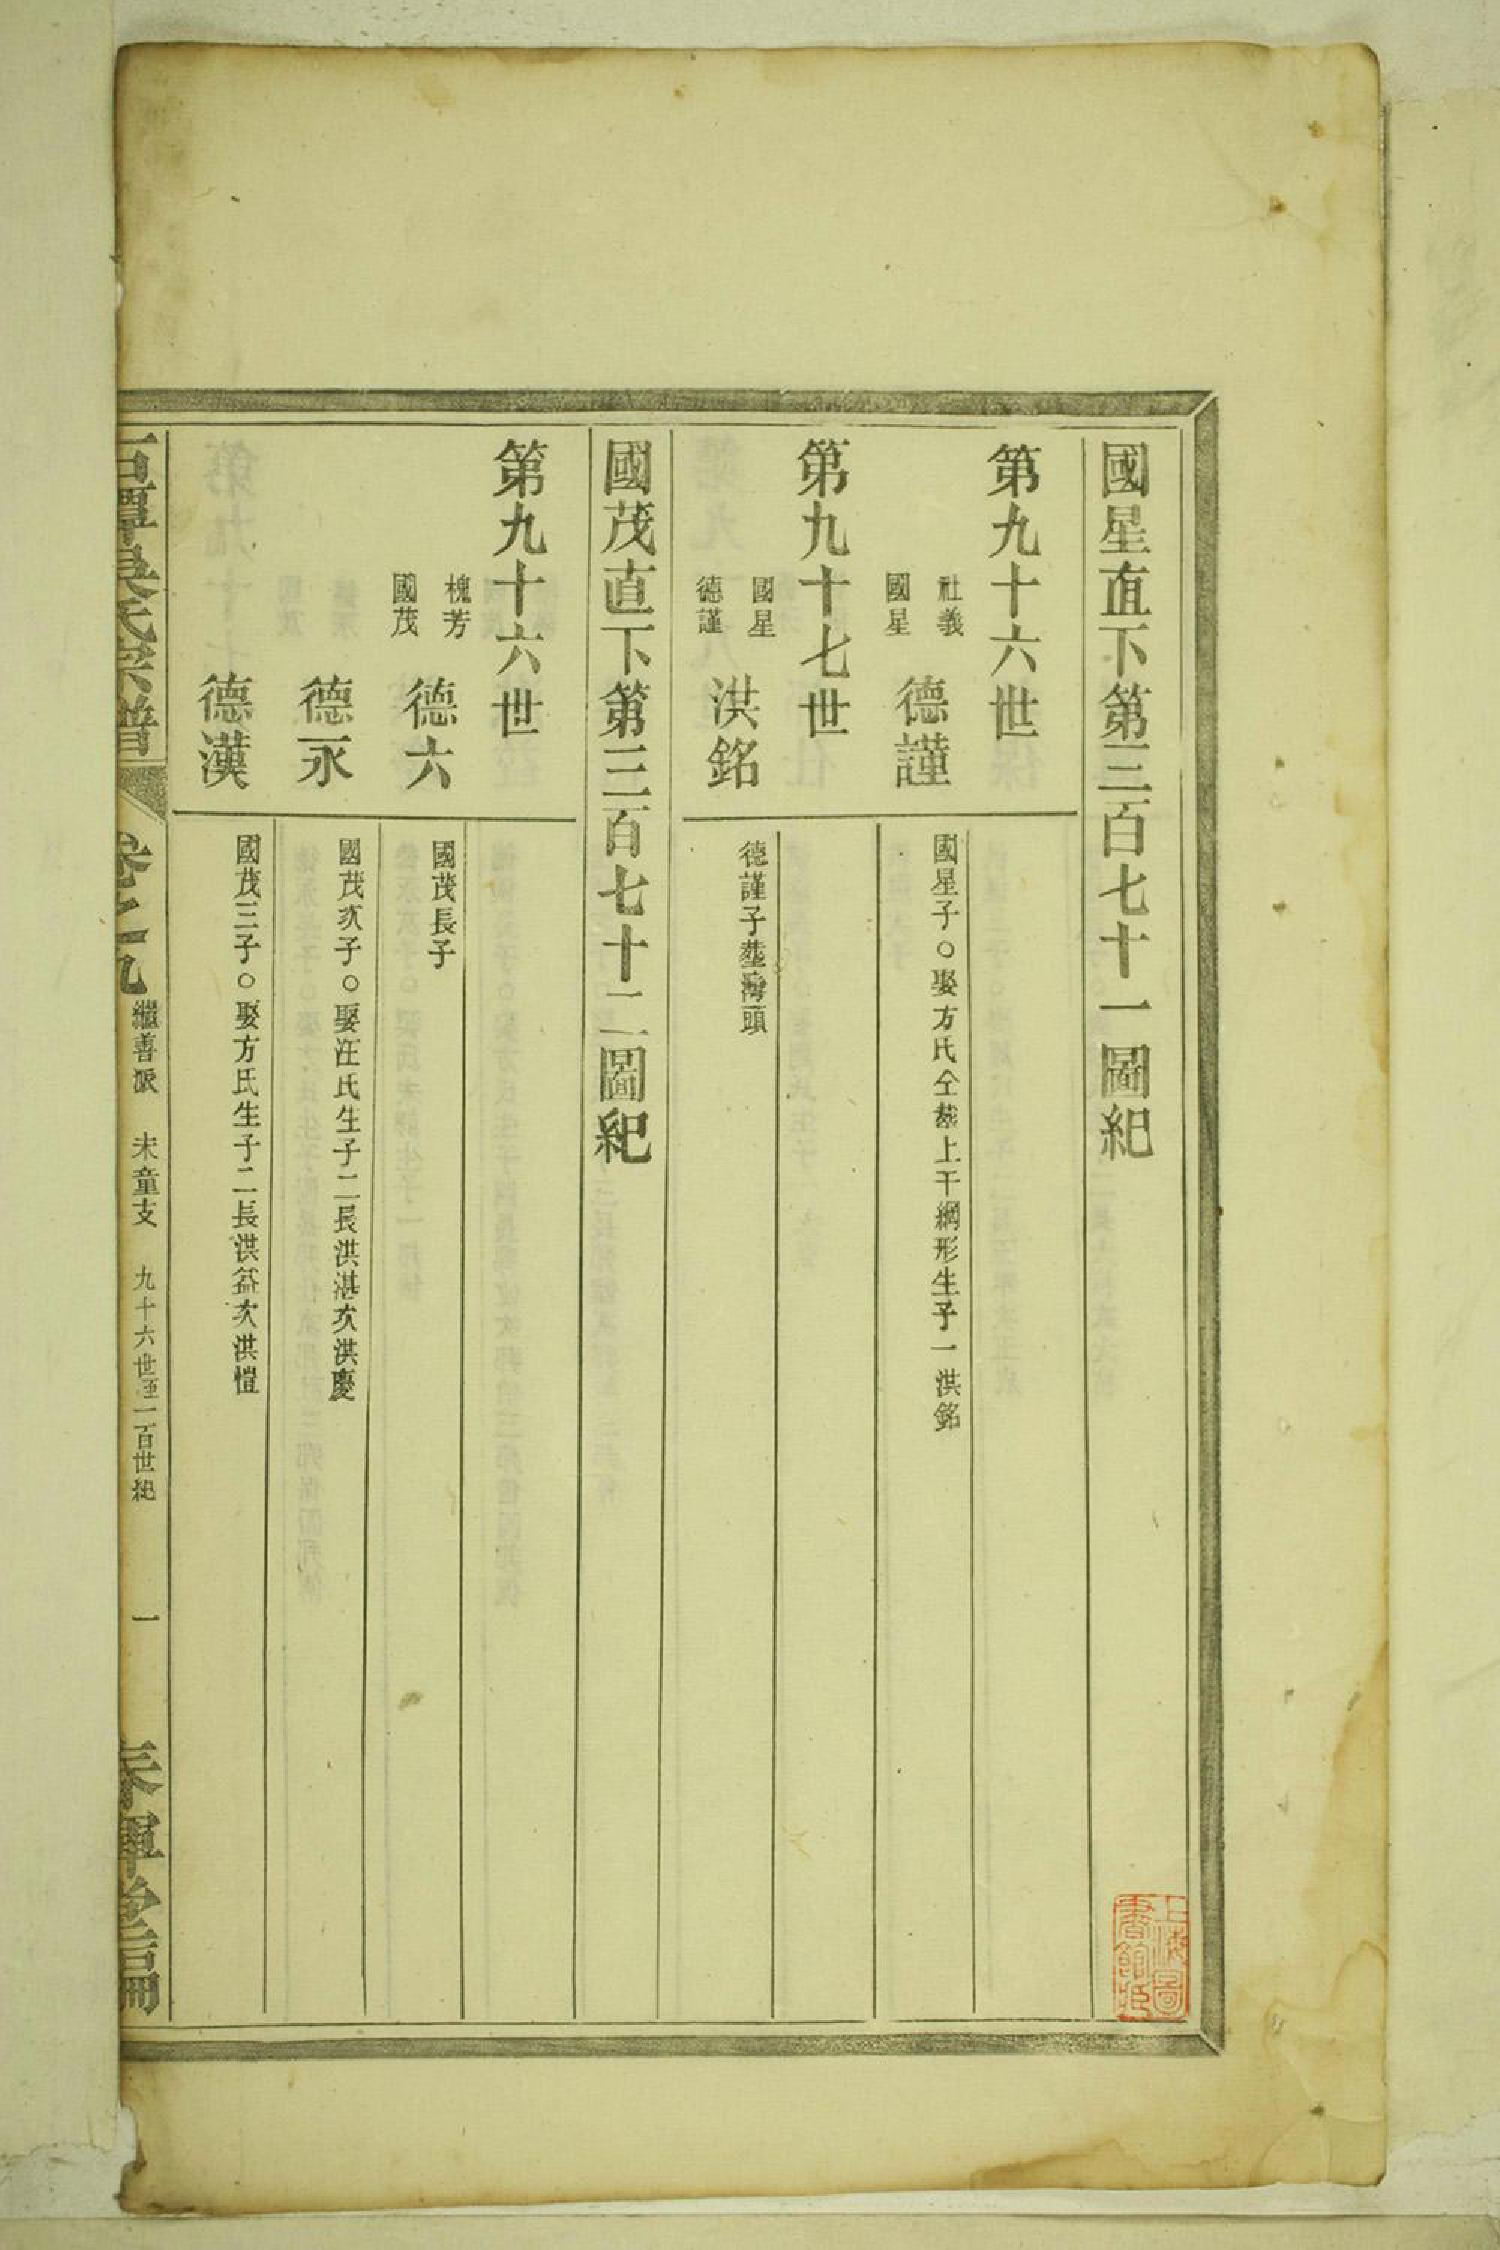 國星直下第三百七十一圖紀
第九十六世
社義
國星
德謹
國星子○娶方氏仝塟上干綱形生子一洪銘
第九十七世
國星
德謹
洪銘
德謹子塟灣頭
國茂直下第三百七十二圖紀
第九十六世
槐芳
國茂
德六
國茂長子
德永
國茂次子○娶汪氏生子二長洪湛次洪慶
德漢
國茂三子○娶方氏生子二長洪益次洪愷
石潭吳氏宗譜
卷之九
繼善派 末童支 九十六世至一百世紀
一
春暉堂編
上海圖書館藏